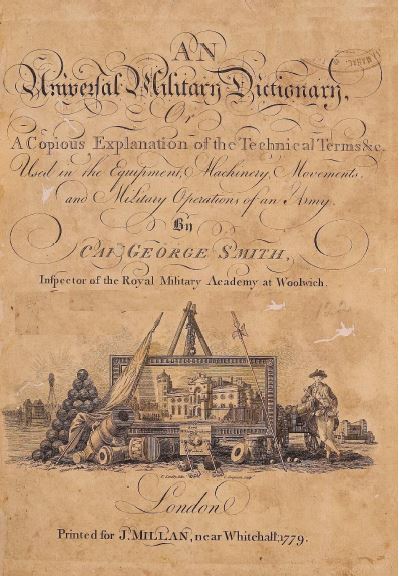 AN
Universal Military Dictionary,
Or
A Copious Explanation of the Technical Terms &c.
Used in the Equipment, Machinery, Movements,
and Military Operations of an Army.
By
CAP. GEORGE SMITH,
Inspector of the Royal Military Academy at Woolwich.
London
Printed for J. MILLAN, near Whitehall: 1779.